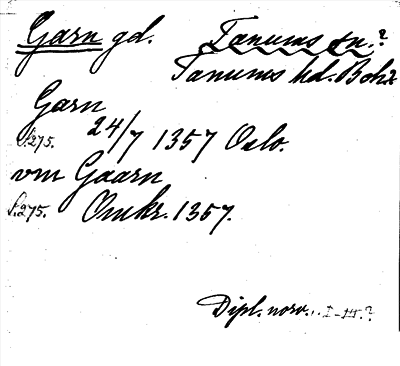 Garn gd. Tanums sn.?
Tanums hd. Boh.
Garn
S.275. 24/7 1357 Oslo.
vm Gaarn
S.275. Omkr. 1357.
Dipl. norv. I-III.?